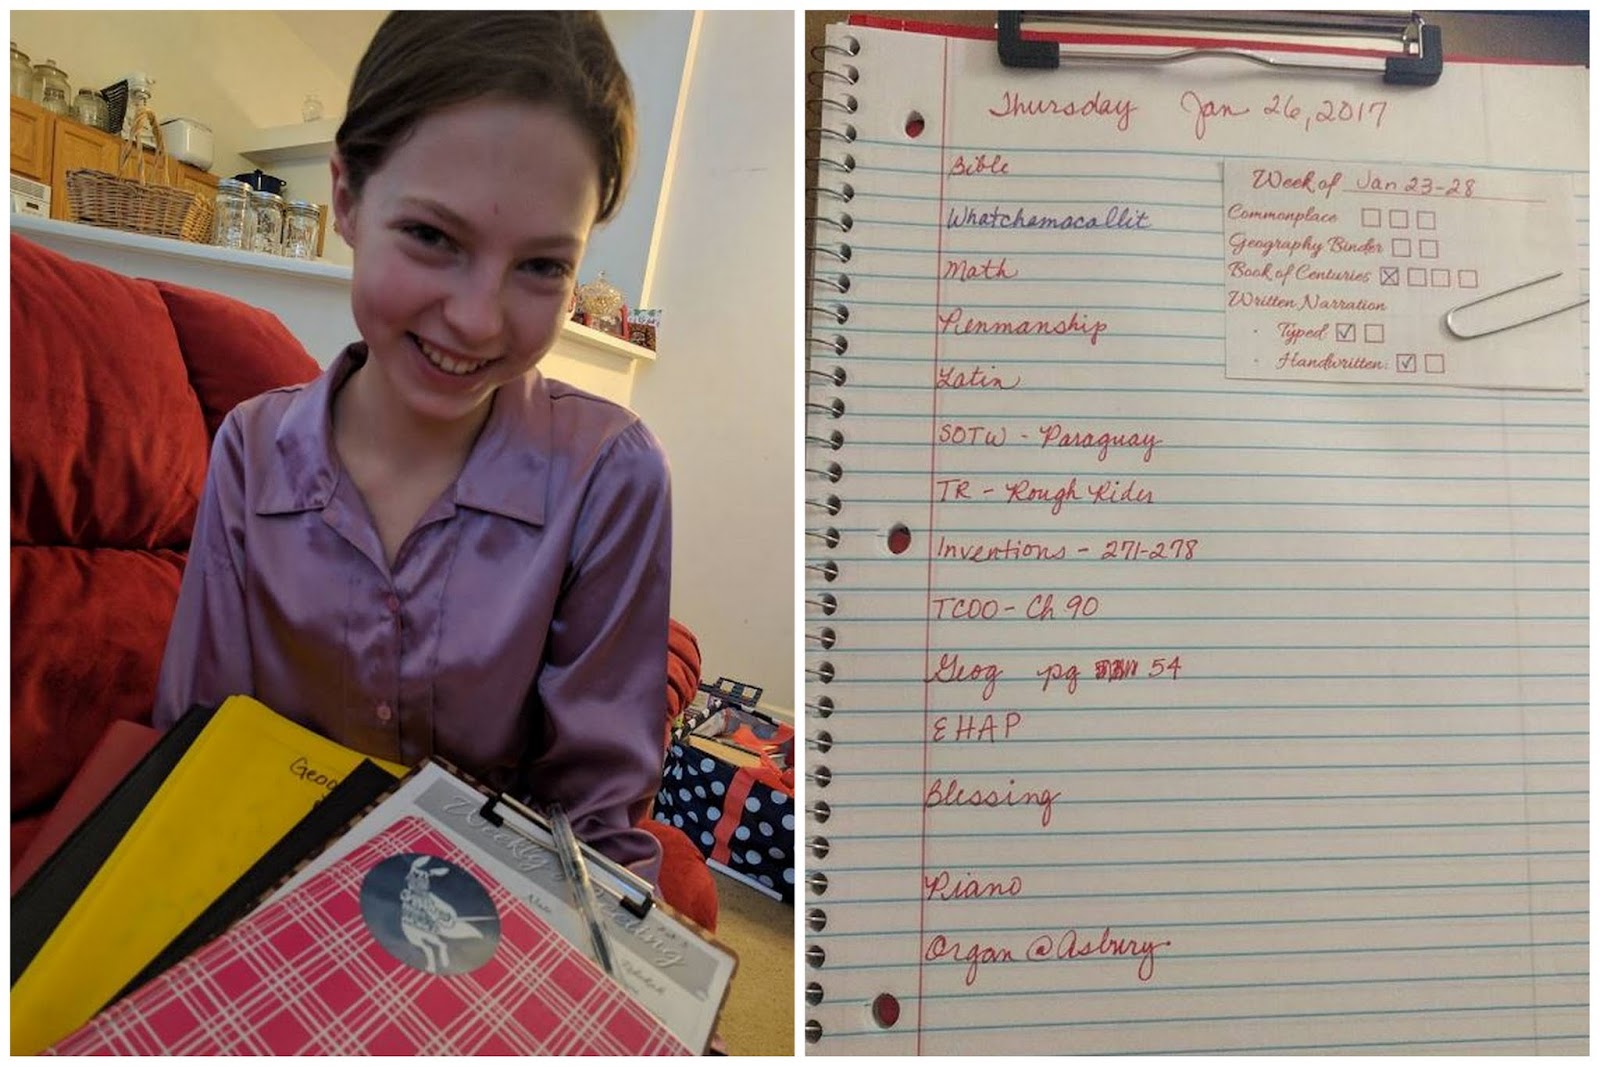 Geog
Weekly
Meeting
Thursday Jan 26, 2017
Bible
Whatchamacallit
Math
Penmanship
Latin
SOTW - Paraguay
TR - Rough Rider
Inventions - 271-278
TCOO - Ch 90
Geog pg 54
EHAP
Blessing
Piano
Organ @ Asbury
Week of Jan 23-28
Commonplace
Geography Binder
Book of Centuries
Written Narration
· Typed
· Handwritten: